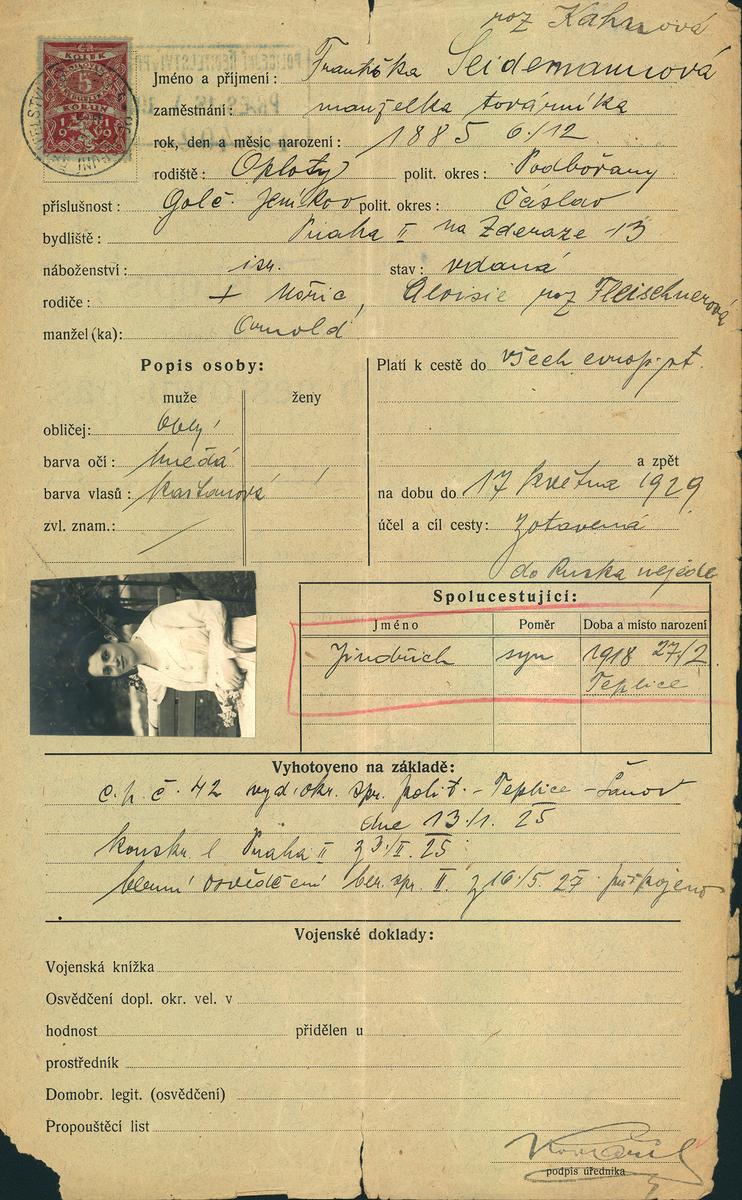 roz Kahnová
KOLEK
5
KOLEK
1919
Jméno a příjmení: Františka Seidemannová
zaměstnání: manželka továrníka
rok, den a měsíc narození: 1885 6./12
rodiště: Oploty polit. okres: Podbořany
příslušnost: Golč. Jeníkov polit. okres: Čáslav
bydliště: Praha II na Zderaze 13
náboženství: isr. stav: vdaná
rodiče: + Mořic, Aloisie roz Fleischnerová
manžel (ka): Arnold
Popis osoby:
muže ženy
obličej: oblý
barva očí: hnědá
barva vlasů: kaštanová
zvl. znam.: /
Platí k cestě do všech evrop. st.
a zpět
na dobu do 17 května 1929
účel a cíl cesty: zotavená
do Ruska nejede
Spolucestující:
Jméno Poměr Doba a místo narození
Jindřich syn 1918 27/2
Teplice
Vyhotoveno na základě:
c. p. č. 42 vyd. okr. spr. polit. - Teplice - Šanov
dne 13./1. 25
konskr. l Praha II z 3./II. 25.
berní osvědčení ber. spr. II. z 16./5. 27. připojeno
Vojenské doklady:
Vojenská knížka
Osvědčení dopl. okr. vel. v
hodnost přidělen u
prostředník
Domobr. legit. (osvědčení)
Propouštěcí list
podpis úředníka